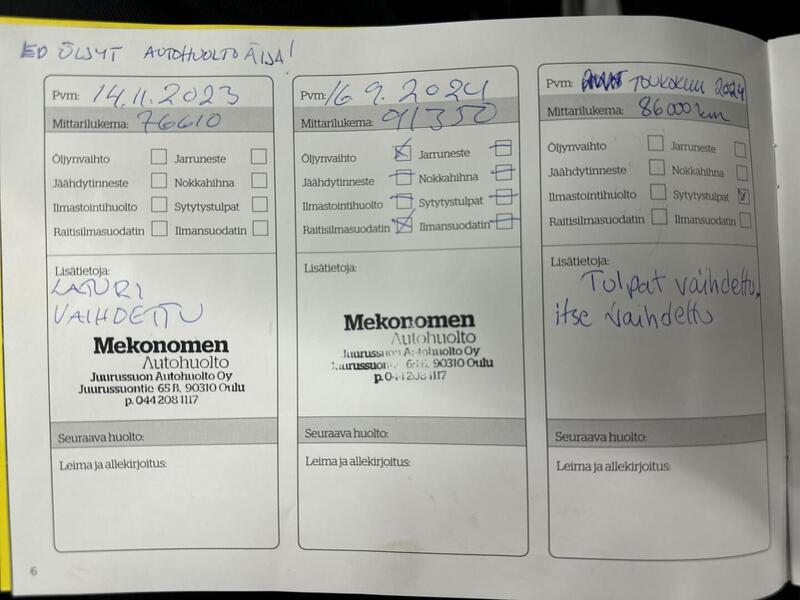 ED ÖLJYT AUTOHUOLTO ÄIJÄ!
Pvm: 14.11.2023
Mittarilukema: 76610
Öljynvaihto Jarruneste
Jäähdytinneste Nokkahihna
Ilmastointihuolto Sytytystulpat
Raitisilmasuodatin Ilmansuodatin
Lisätietoja:
LATURI
VAIHDETTU
Mekonomen
Autohuolto
Juurussuon Autohuolto Oy
Juurussuontie 65 B, 90310 Oulu
p. 044 208 1117
Seuraava huolto:
Leima ja allekirjoitus:
Pvm: 16 9. 2024
Mittarilukema: 91350
Öljynvaihto Jarruneste
Jäähdytinneste Nokkahihna
Ilmastointihuolto Sytytystulpat
Raitisilmasuodatin Ilmansuodatin
Lisätietoja:
Mekonomen
Autohuolto
Juurussuon Autohuolto Oy
Juurussuon 65 B, 90310 Oulu
p. 044 208 1117
Seuraava huolto:
Leima ja allekirjoitus:
Pvm: TOUKOKUU 2024
Mittarilukema: 86000km
Öljynvaihto Jarruneste
Jäähdytinneste Nokkahihna
Ilmastointihuolto Sytytystulpat
Raitisilmasuodatin Ilmansuodatin
Lisätietoja:
Tulpat vaihdettu,
itse vaihdettu
Seuraava huolto:
Leima ja allekirjoitus:
6